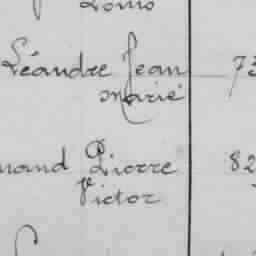 Louis
Léandre Jean 73
Marie
mand Pierre 82
Victor